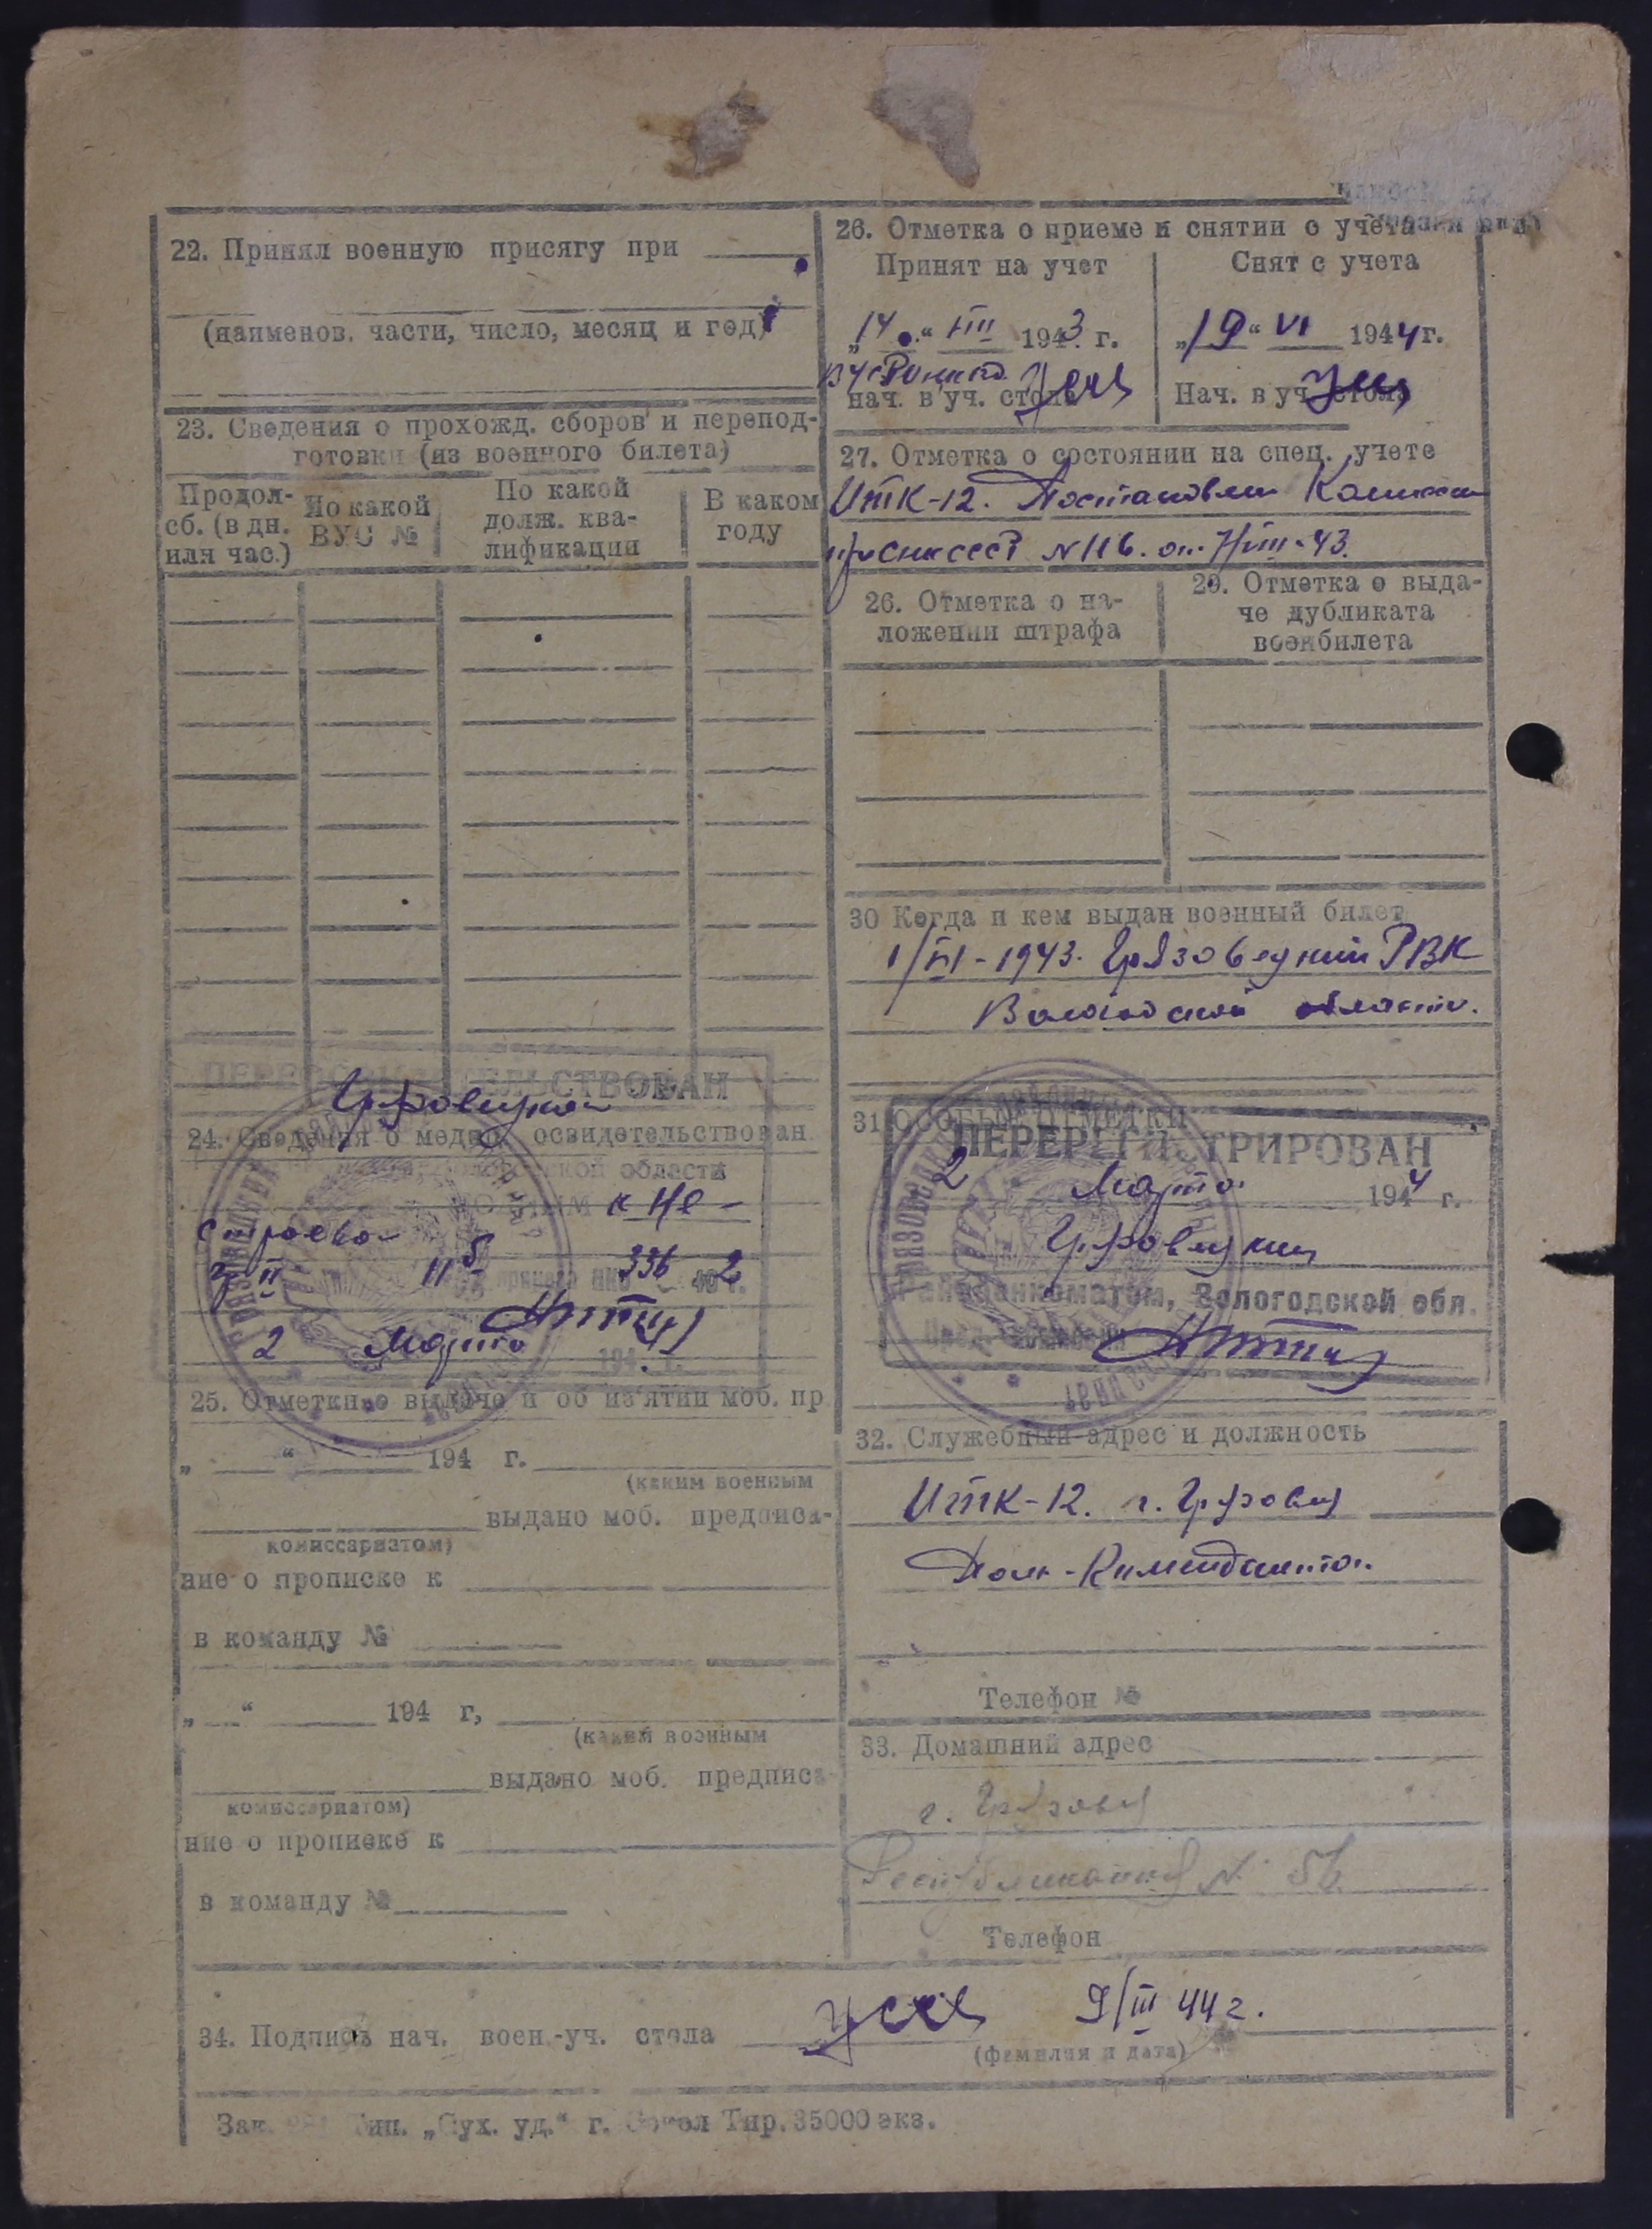 22. Принял военную присягу при
(наименов. части, число, месяц и год)
23. Сведения о прохожд. сборов и перепод-
готовки (из военного билета)
Продол-
сб. (в дн.
или час.)
По какой
ВУС №
По какой
долж. ква-
лификации
В каком
году
ПЕРЕОСВИДЕТЕЛЬСТВОВАН
24. Сведения о медиц. освидетельствован.
области
к не-
строевой
336
2 Марта 194 г.
25. Отметки о выдаче и об из'ятии моб. пр.
„ “ 194 г.
(каким военным
выдано моб. предписа-
комиссариатом)
ние о прописке к
в команду №
„ “ 194 г,
(каким военным
выдано моб. предписа-
комиссариатом)
ние о прописке к
в команду №
26. Отметка о приеме и снятии с учета
Принят на учет
Снят с учета
„14“ VIII 1943 г.
„19“ VI 1944 г.
нач. в уч. стола
Нач. в уч. стола
27. Отметка о состоянии на спец. учете
ИТК-12. Постановлен Комиссии
при СНК СССР N 116. от 7/VIII-43.
26. Отметка о на-
ложении штрафа
29. Отметка о выда-
че дубликата
военбилета
30 Когда и кем выдан военный билет
1/VI-1943. Грязовецкий РВК
Вологодской области.
31 ОСОБЫЕ ОТМЕТКИ
ПЕРЕРЕГИСТРИРОВАН
2 Марта 1944 г.
Грязовецким
Райвоенкоматом, Вологодской обл.
32. Служебный адрес и должность
ИТК-12. г. Грязовец
Пом-Коменданта.
Телефон №
33. Домашний адрес
г. Грязовец
Республиканская N 56
Телефон
34. Подпись нач. воен.-уч. стола 9/III 44 г.
(фамилия и дата)
Зак. Тип. „Сух. уд.“ г. Сокол Тир. 35000 экз.